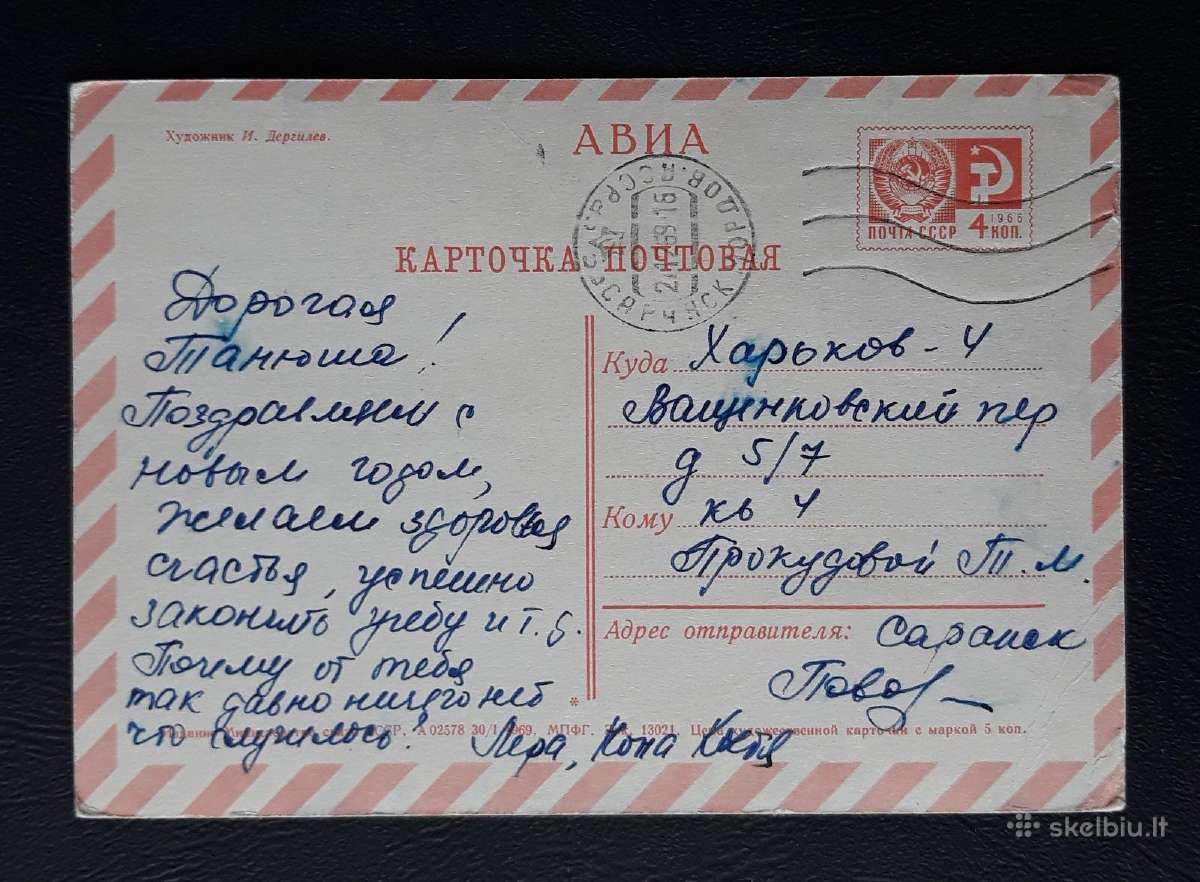 Художник И. Дергилев.
АВИА
ПОЧТА СССР
4 1966
КОП.
КАРТОЧКА ПОЧТОВАЯ
Дорогая
Танюша!
Поздравляем с
новым годом,
желаем здоровья
счастья, успешно
закончить учебу и т. д.
Почему от тебя
так давно ничего нет
что случилось?
Лера, Кона Катя
Куда Харьков-4
Ващенковский пер
д 5/7
Кому кв 4
Прокудовой Т. М.
Адрес отправителя: Саранск
Издание Министерства связи СССР, А 02578 30/I 1969. МПФГ. Зак. 13021. Цена художественной карточки с маркой 5 коп.
skelbiu.lt